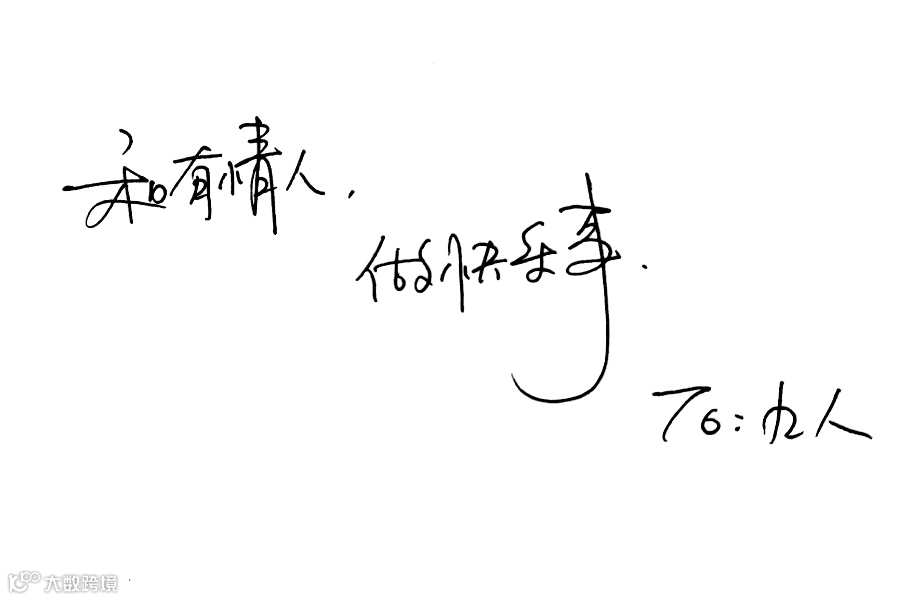 和有情人,
做快乐事.
To: 九人
大数跨境